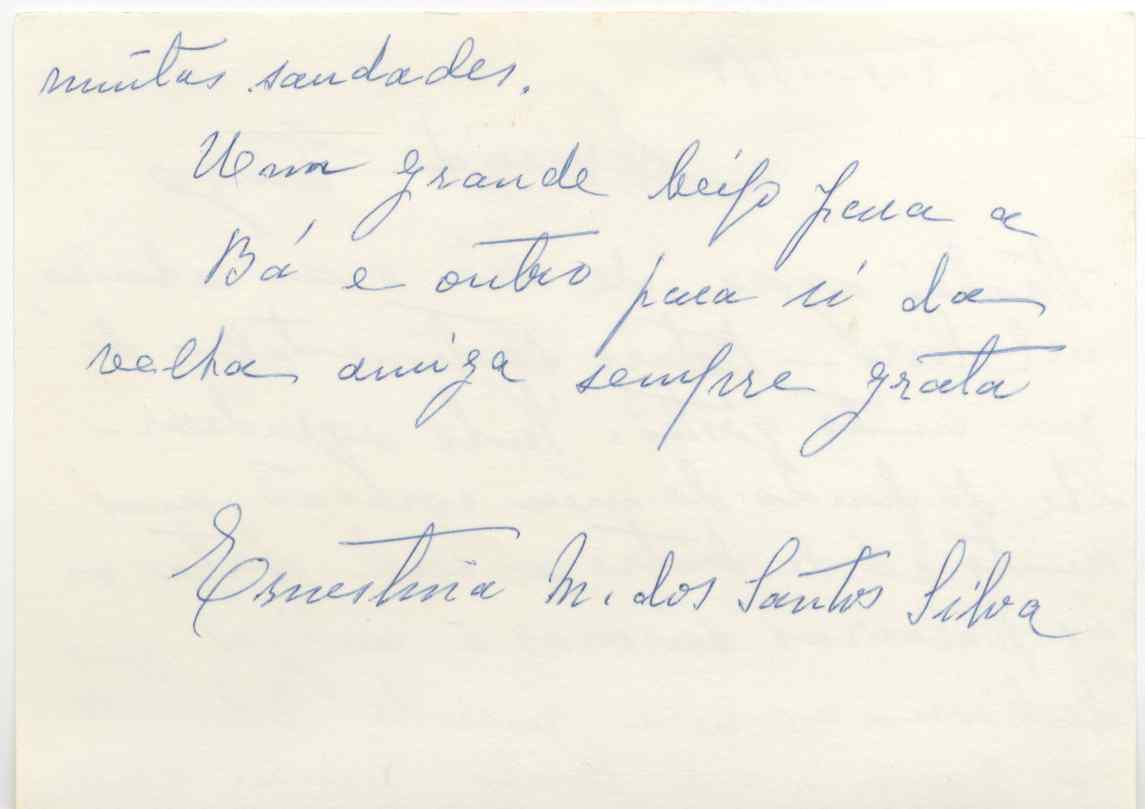 muitas saudades.
Um grande beijo para a
Bá e outro para si da
velha amiga sempre grata
Ernestina M. dos Santos Silva